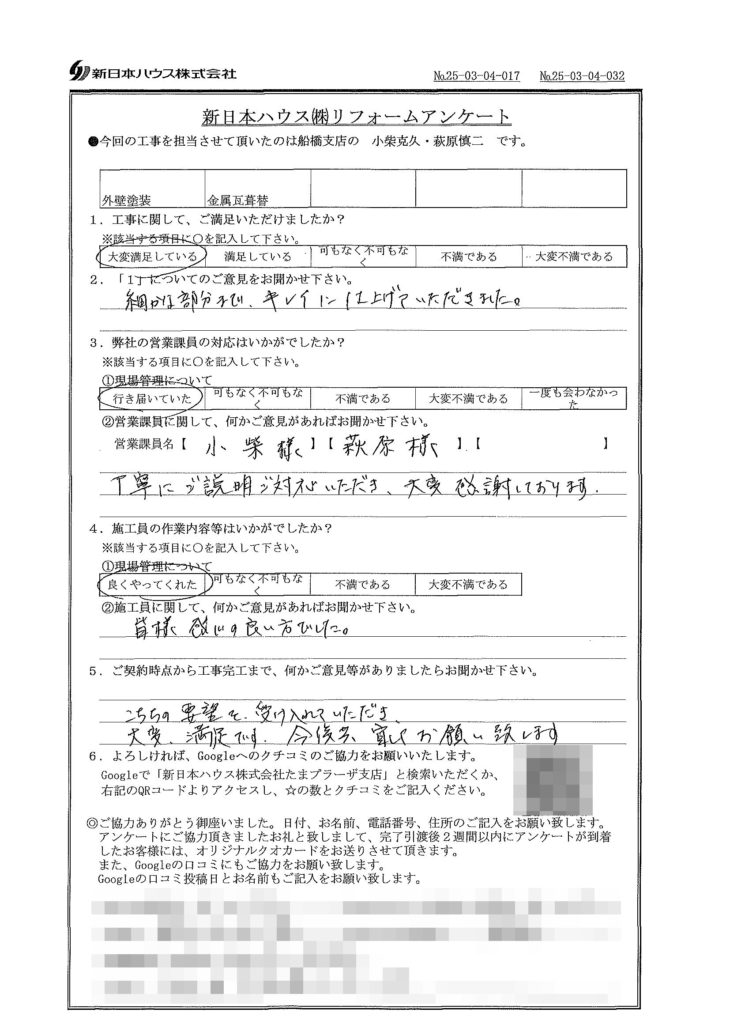 新日本ハウス株式会社
№25-03-04-017 №25-03-04-032
新日本ハウス㈱リフォームアンケート
●今回の工事を担当させて頂いたのは船橋支店の 小柴克久・萩原慎二 です。
外壁塗装 金属瓦葺替
1．工事に関して、ご満足いただけましたか？
※該当する項目に○を記入して下さい。
大変満足している 満足している 可もなく不可もなく 不満である 大変不満である
2．「1」についてのご意見をお聞かせ下さい。
細かな部分まで、キレイに仕上げていただきました。
3．弊社の営業課員の対応はいかがでしたか？
※該当する項目に○を記入して下さい。
①現場管理について
行き届いていた 可もなく不可もなく 不満である 大変不満である 一度も会わなかった
②営業課員に関して、何かご意見があればお聞かせ下さい。
営業課員名【 小柴様 】【 萩原様 】【 】
丁寧にご説明ご対応いただき、大変感謝しております。
4．施工員の作業内容等はいかがでしたか？
※該当する項目に○を記入して下さい。
①現場管理について
良くやってくれた 可もなく不可もなく 不満である 大変不満である
②施工員に関して、何かご意見があればお聞かせ下さい。
皆様 感じの良い方でした。
5．ご契約時点から工事完工まで、何かご意見等がありましたらお聞かせ下さい。
こちらの要望を、受け入れていただき、
大変、満足です。今後共、宜しくお願い致します
6．よろしければ、Googleへのクチコミのご協力をお願いいたします。
Googleで「新日本ハウス株式会社たまプラーザ支店」と検索いただくか、
右記のQRコードよりアクセスし、☆の数とクチコミをご記入ください。
◎ご協力ありがとう御座いました。日付、お名前、電話番号、住所のご記入をお願い致します。
アンケートにご協力頂きましたお礼と致しまして、完了引渡後2週間以内にアンケートが到着
したお客様には、オリジナルクオカードをお送りさせて頂きます。
また、Googleの口コミにもご協力をお願い致します。
Googleの口コミ投稿日とお名前もご記入をお願い致します。